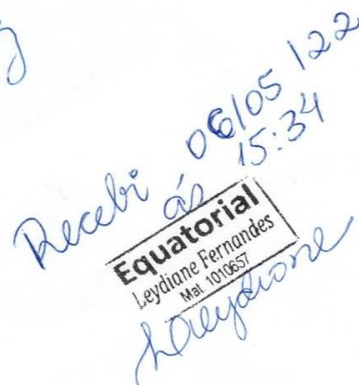 Recebi 06/05/22
às 15:34
Equatorial
Leydiane Fernandes
Mat. 1010657
Leydiane